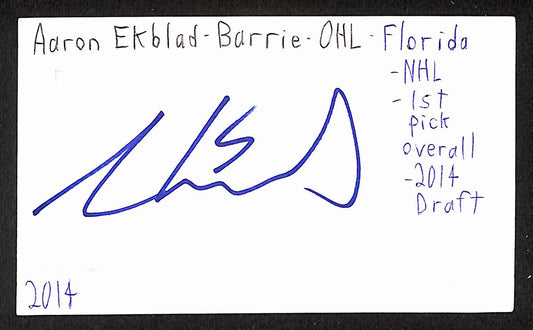 Aaron Ekblad - Barrie - OHL - Florida
- NHL
- 1st
pick
overall
- 2014
Draft
2014